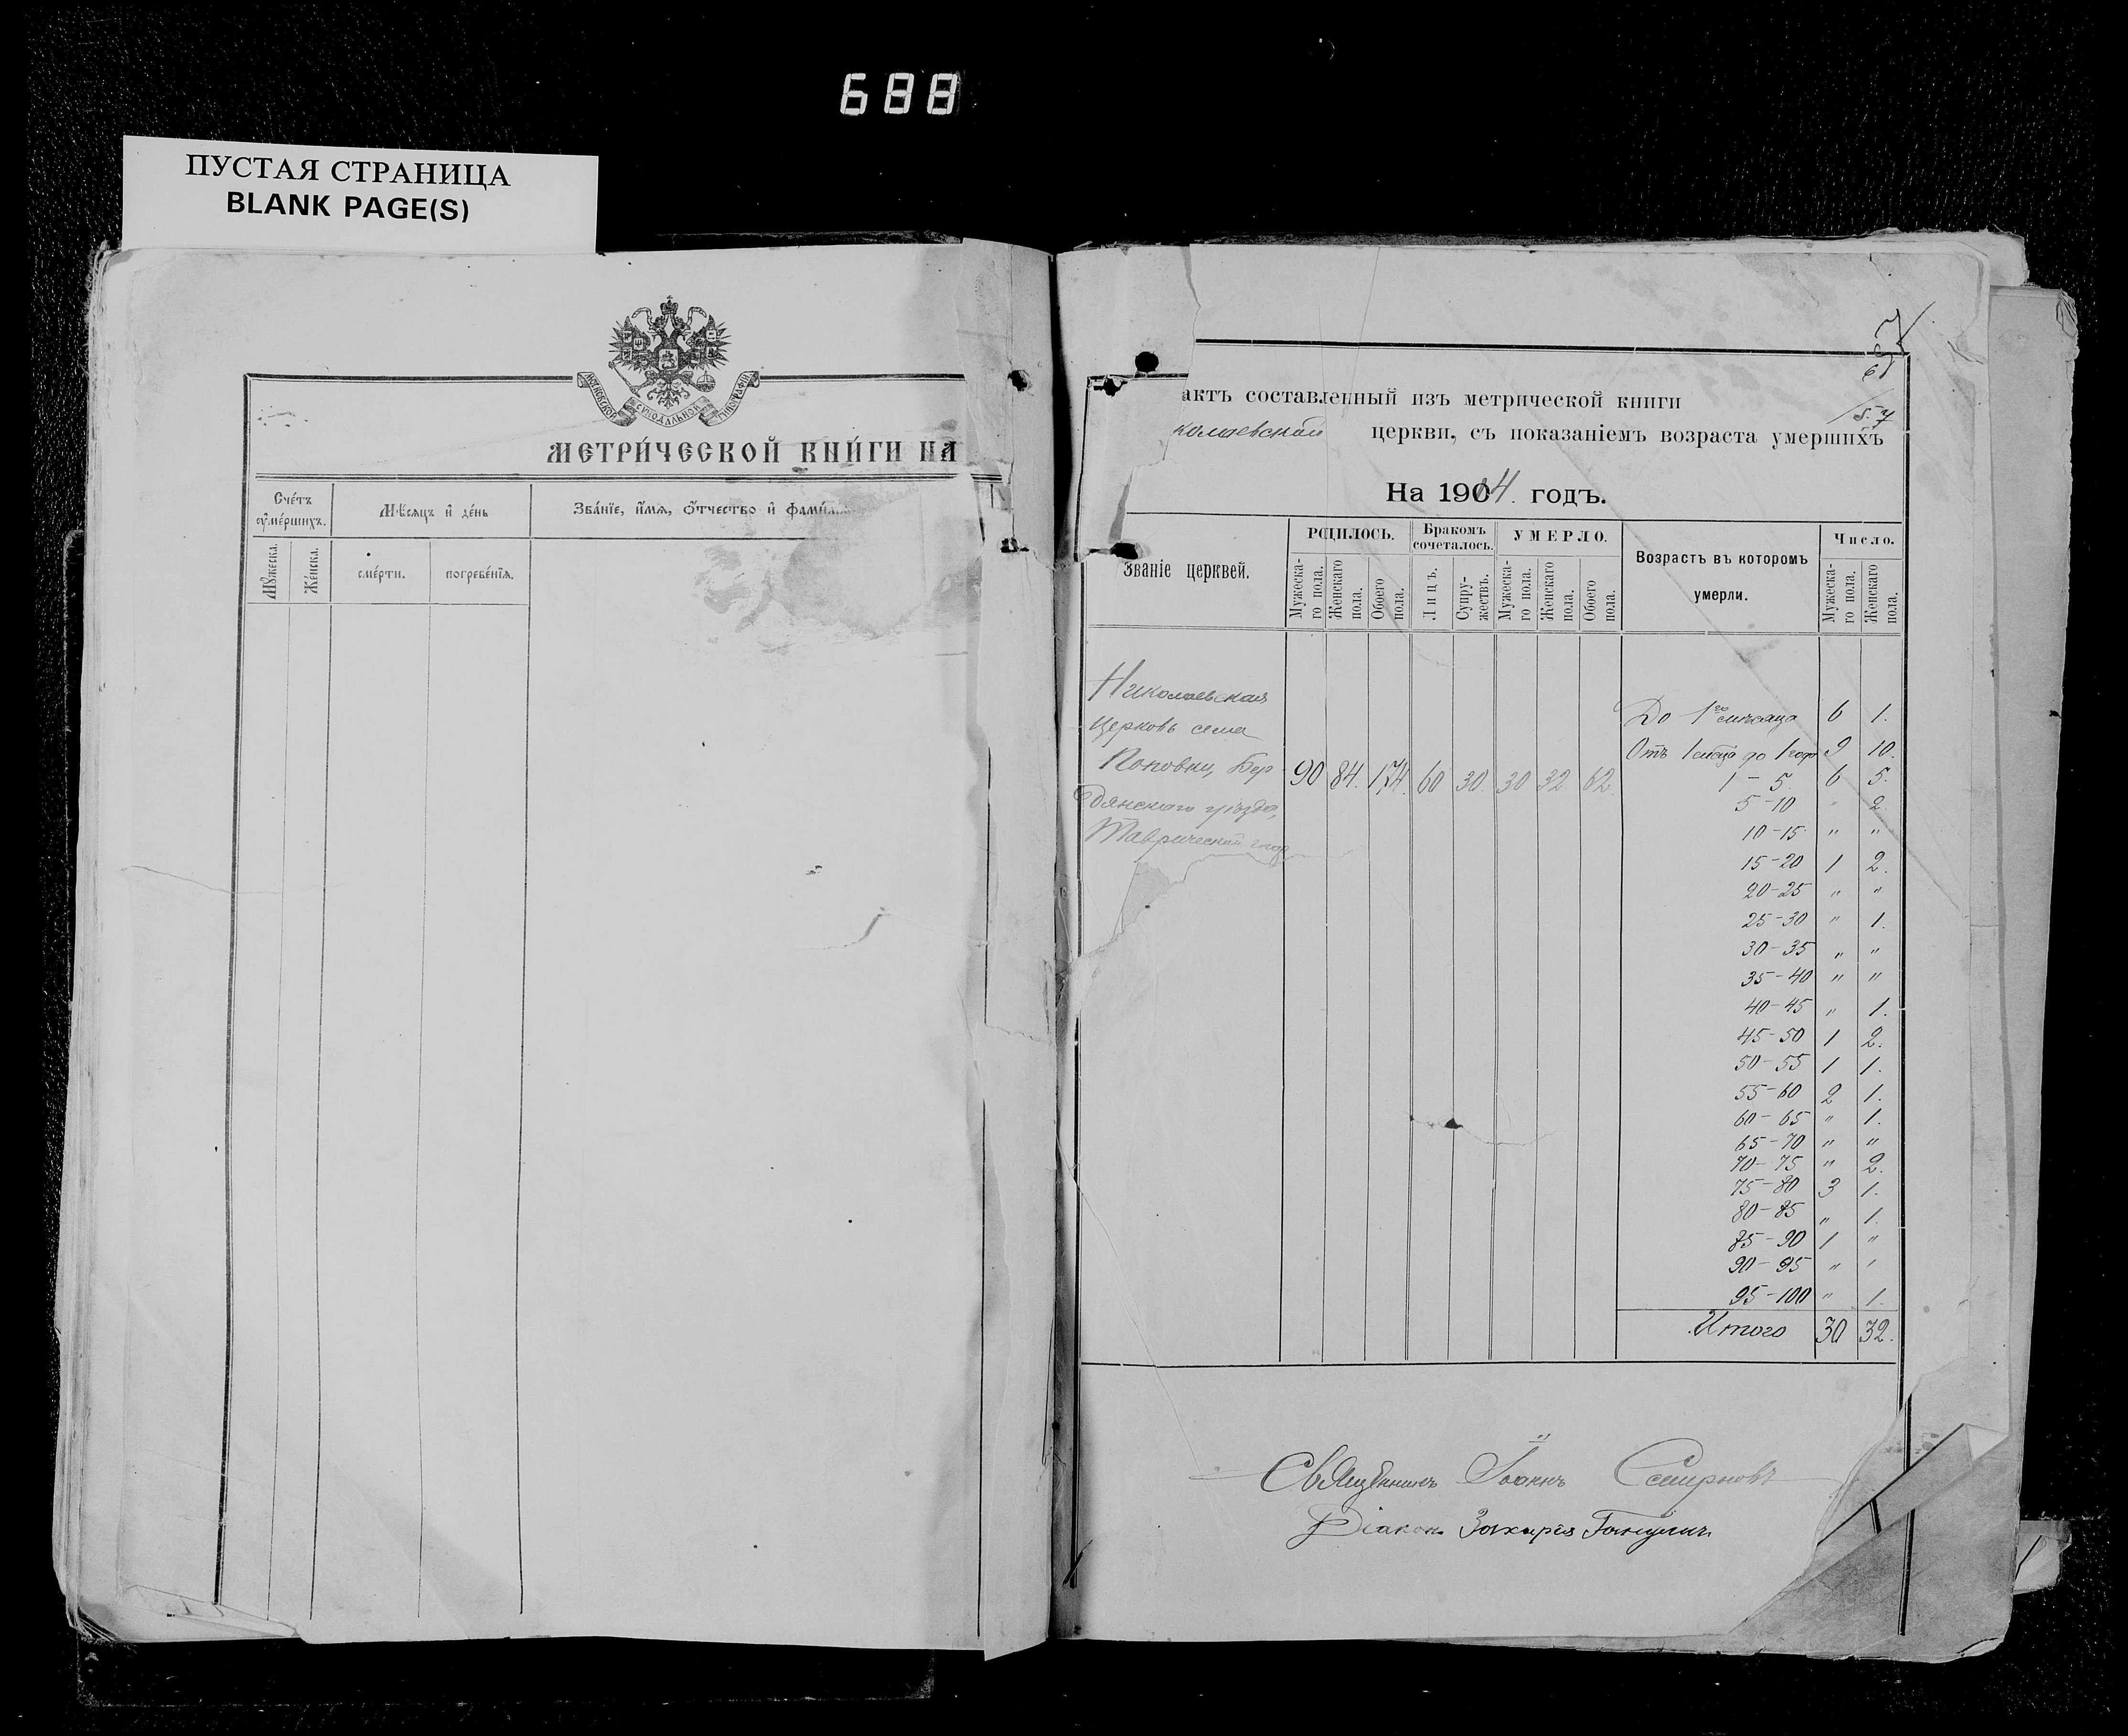 688
ПУСТАЯ СТРАНИЦА
BLANK PAGE(S)
МОСКОВСКОЙ СУНОДАЛЬНОЙ ТИПОГРАФІИ
МЕТРИ́ЧЕСКОЙ КНИ́ГИ НА
Сче́тъ ᲂу҆ме́ршихъ.
Мѣ́сяцъ и҆ де́нь
Зва́нїе, и҆́мѧ, ѻ҆́тчество и҆ фами́л
Мꙋ́жеска.
Же́нска.
сме́рти.
погребе́нїѧ.
актъ составленный изъ метрической книги
колаевской церкви, съ показаніемъ возраста умершихъ
57
На 1904. годъ.
Званіе церквей.
РОДИЛОСЬ.
Бракомъ сочеталось.
УМЕРЛО.
Возрастъ въ которомъ умерли.
Число.
Мужеска-го пола.
Женскаго пола.
Обоего пола.
Лицъ.
Супру-жествъ.
Мужеска-го пола.
Женскаго пола.
Обоего пола.
Мужеска-го пола.
Женскаго пола.
Николаевская
Церковь села
Поповки, Бер
дянского уѣзда,
Таврической губ
90 84. 174. 60 30. 30 32 62.
До 1го мѣсяца 6 1.
Отъ 1 мѣсяца до 1 года 9 10.
1 - 5. 6 5.
5-10 " 2.
10-15 " "
15-20 1 2.
20-25 " "
25-30 " 1.
30-35 " "
35-40 " "
40-45 " 1.
45-50 1 2.
50-55 1 1.
55-60 2 1.
60-65 " 1.
65-70 " "
70-75 " 2.
75-80 3 1.
80-85 " 1.
85-90 1 "
90-95 " "
95-100 " 1.
Итого 30 32.
Священникъ Іоаннъ Смирновъ
Діаконъ Захарія